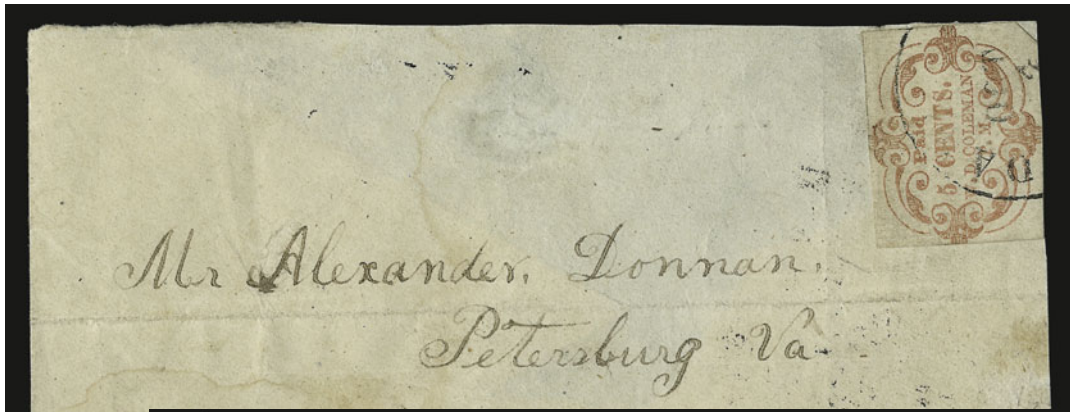 Paid
5 CENTS.
J. D. COLEMAN
P. M.
D 4
Mr Alexander. Donnan.
Petersburg Va